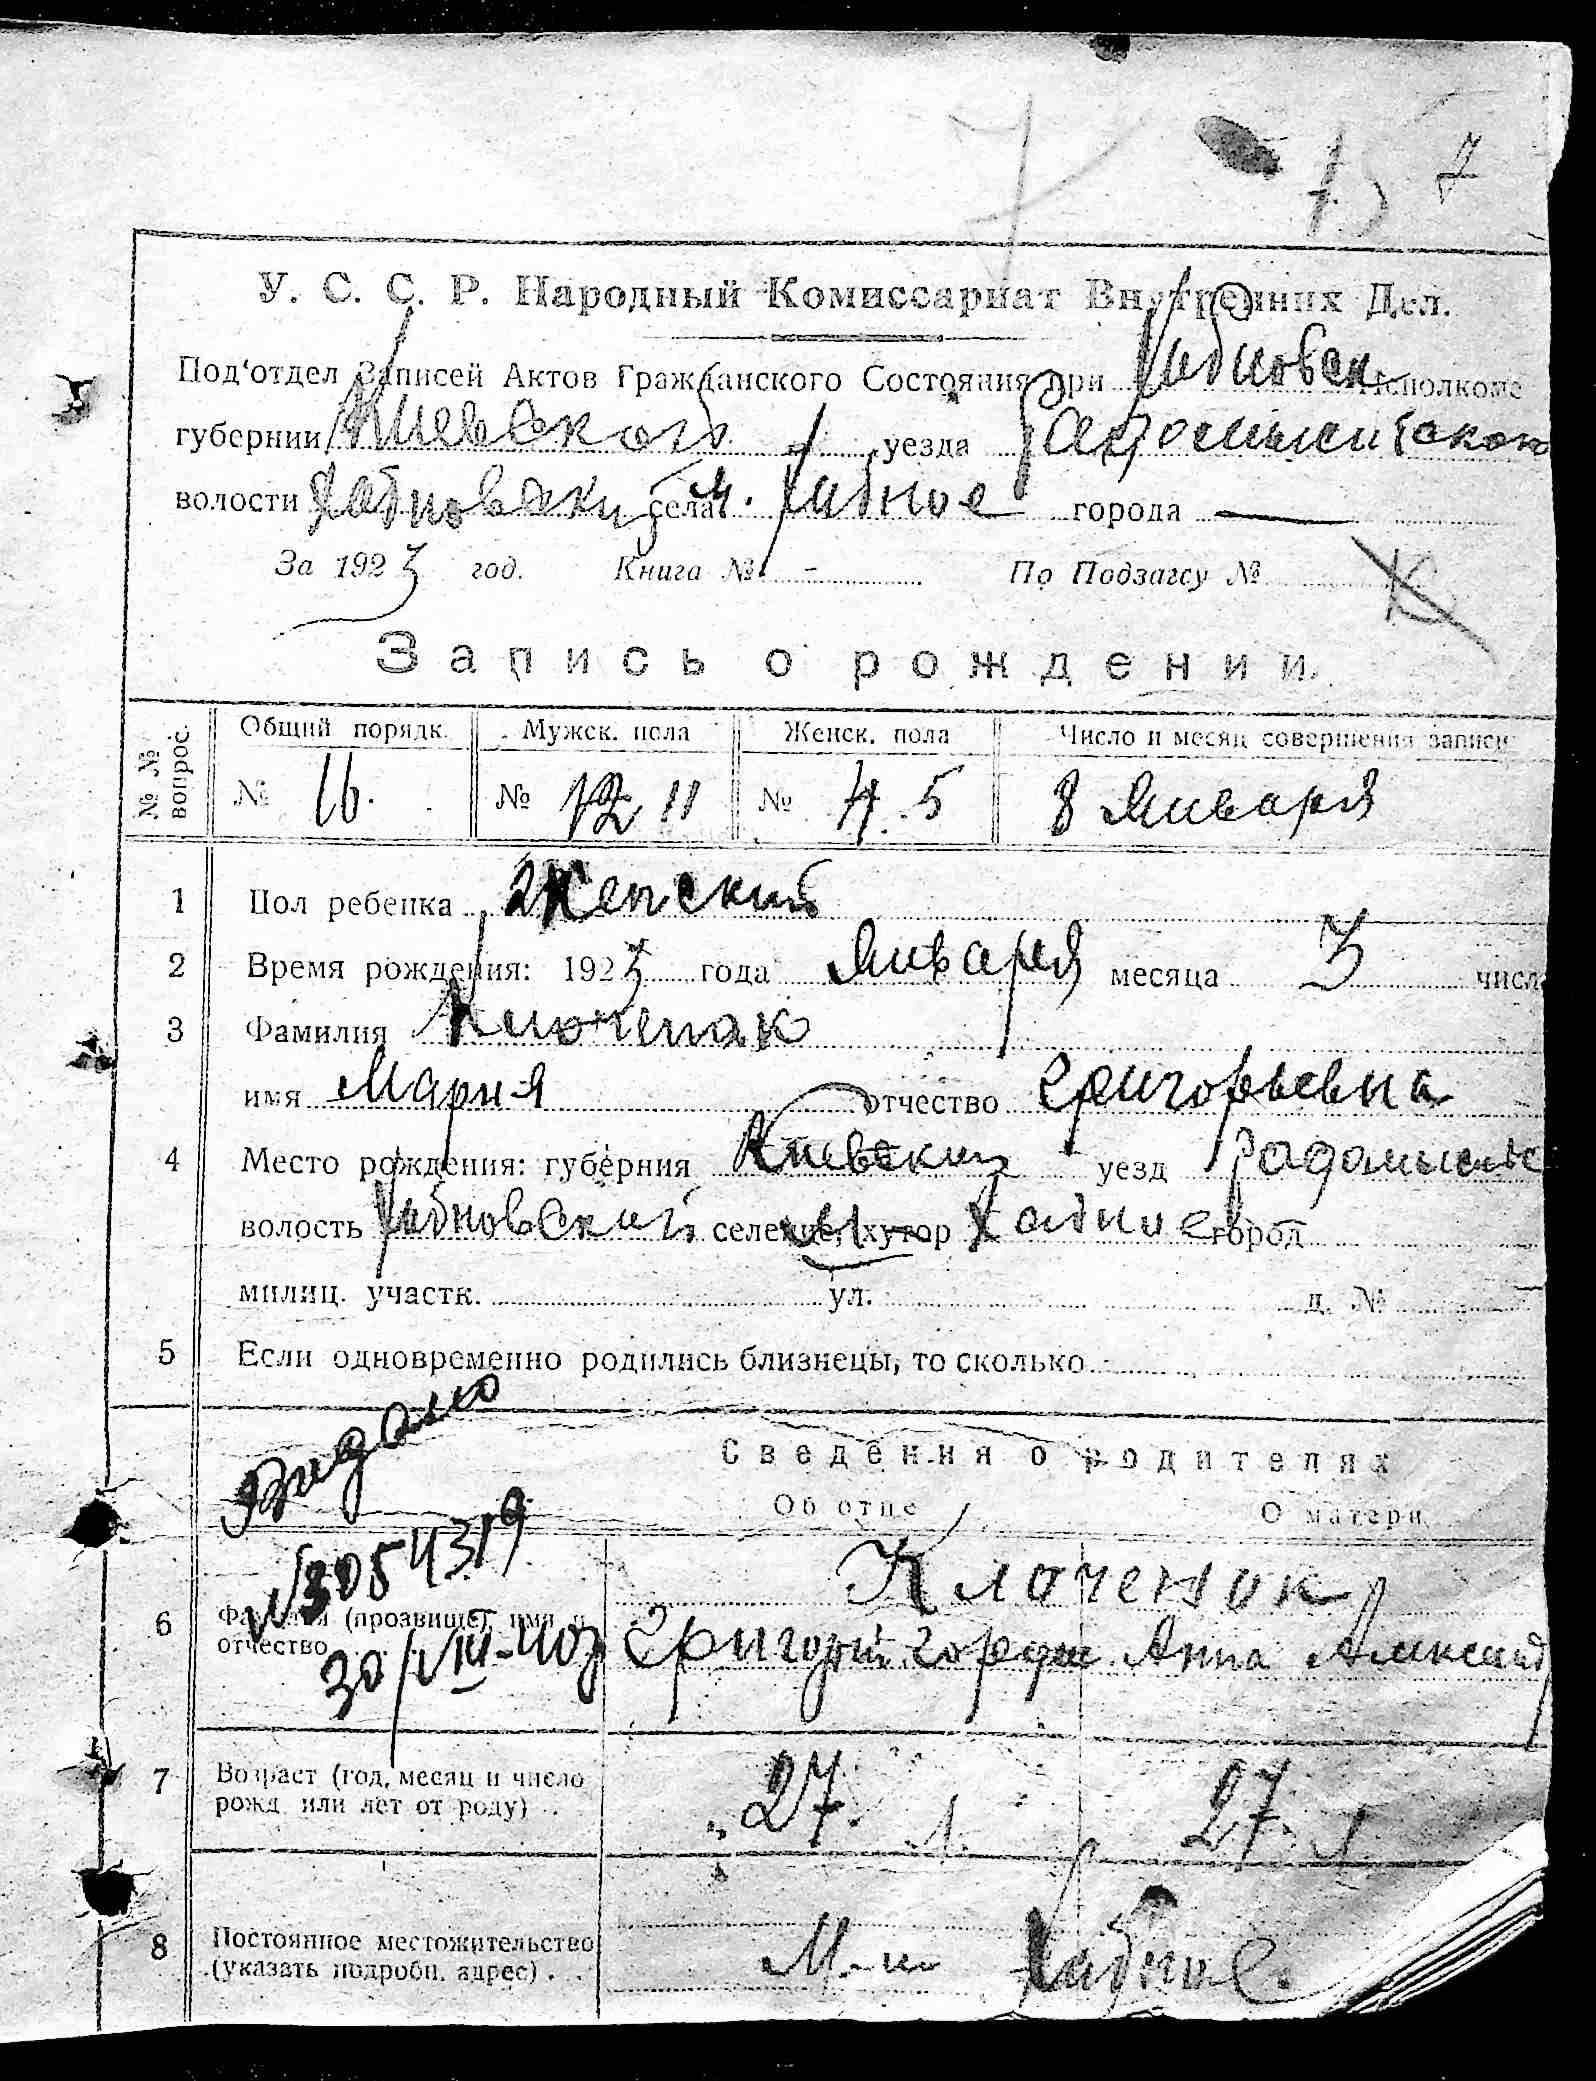 7
7
У. С. С. Р. Народный Комиссариат Внутренних Дел.
Под‘отдел Записей Актов Гражданского Состояния при Хабновск Исполкоме
губернии Киевского уезда Радомысльского
волости Хабновский села м. Хабное города —
За 1923 год. Книга № - По Подзагсу №
Запись о рождении.
№№ вопрос.
Общий порядк. Мужск. пола Женск. пола Число и месяц совершения записи
№ 16. № 12 11 № 4. 5 8 Января
1 Пол ребенка Женский
2 Время рождения: 1923 года Января месяца 3 числ
3 Фамилия Клоченок
имя Мария отчество Григорьевна
4 Место рождения: губерния Киевский уезд Радомысльс
волость Хабновский селение, хутор м Хабное город
милиц. участк. ул. д. №
5 Если одновременно родились близнецы, то сколько -
Видано
Сведения о родителях
Об отце О матери
№ 3054319
Клоченок
6 Фамилия (прозвище), имя и
отчество Григорий Анна Александ
30/VIII-
7 Возраст (год, месяц и число
рожд. или лет от роду) . . 27. л. 27. л.
8 Постоянное местожительство
(указать подробн. адрес) . . М-ко Хабное.